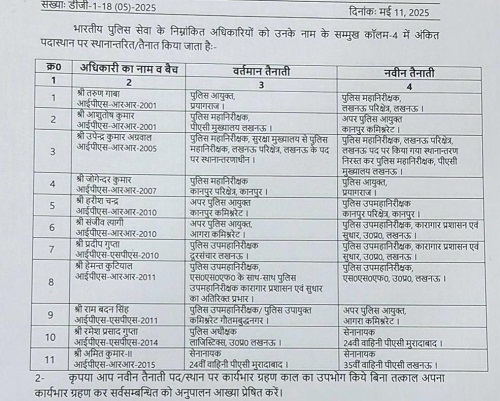 संख्याः डीजी-1-18 (05)-2025 दिनांकः मई 11, 2025
भारतीय पुलिस सेवा के निम्नांकित अधिकारियों को उनके नाम के सम्मुख कॉलम-4 में अंकित
पदास्थान पर स्थानान्तरित/तैनात किया जाता हैः-
क्र0 अधिकारी का नाम व बैच वर्तमान तैनाती नवीन तैनाती
1 2 3 4
1 श्री तरुण गाबा पुलिस आयुक्त, पुलिस महानिरीक्षक,
आईपीएस-आरआर-2001 प्रयागराज । लखनऊ परिक्षेत्र, लखनऊ ।
2 श्री आशुतोष कुमार पुलिस महानिरीक्षक, अपर पुलिस आयुक्त
आईपीएस-आरआर-2001 पीएसी मुख्यालय लखनऊ । कानपुर कमिश्नरेट ।
3 श्री उपेन्द्र कुमार अग्रवाल पुलिस महानिरीक्षक, सुरक्षा मुख्यालय से पुलिस पुलिस महानिरीक्षक, लखनऊ परिक्षेत्र,
आईपीएस-आरआर-2005 महानिरीक्षक, लखनऊ परिक्षेत्र, लखनऊ के पद लखनऊ पद पर किया गया स्थानान्तरण
पर स्थानान्तरणाधीन । निरस्त कर पुलिस महानिरीक्षक, पीएसी
मुख्यालय लखनऊ ।
4 श्री जोगेन्दर कुमार पुलिस महानिरीक्षक पुलिस आयुक्त,
आईपीएस-आरआर-2007 कानपुर परिक्षेत्र, कानपुर । प्रयागराज ।
5 श्री हरीश चन्द्र अपर पुलिस आयुक्त पुलिस उपमहानिरीक्षक
आईपीएस-आरआर-2010 कानपुर कमिश्नरेट । कानपुर परिक्षेत्र, कानपुर ।
6 श्री संजीव त्यागी अपर पुलिस आयुक्त, पुलिस उपमहानिरीक्षक, कारागार प्रशासन एवं
आईपीएस-आरआर-2010 आगरा कमिश्नरेट । सुधार, उ0प्र0, लखनऊ ।
7 श्री प्रदीप गुप्ता पुलिस उपमहानिरीक्षक पुलिस उपमहानिरीक्षक, कारागार प्रशासन एवं
आईपीएस-एसपीएस-2010 दूरसंचार लखनऊ । सुधार, उ0प्र0, लखनऊ ।
8 श्री हेमन्त कुटियाल पुलिस उपमहानिरीक्षक, पुलिस उपमहानिरीक्षक,
आईपीएस-आरआर-2011 एस0एस0एफ0 के साथ-साथ पुलिस एस0एस0एफ0, उ0प्र0, लखनऊ ।
उपमहानिरीक्षक कारागार प्रशासन एवं सुधार
का अतिरिक्त प्रभार ।
9 श्री राम बदन सिंह पुलिस उपमहानिरीक्षक/ पुलिस उपायुक्त अपर पुलिस आयुक्त,
आईपीएस-एसपीएस-2011 कमिश्नरेट गौतमबुद्धनगर । आगरा कमिश्नरेट ।
10 श्री रमेश प्रसाद गुप्ता पुलिस अधीक्षक सेनानायक
आईपीएस-एसपीएस-2014 लाजिस्टिक्स, उ0प्र0 लखनऊ । 24वीं वाहिनी पीएसी मुरादाबाद ।
11 श्री अमित कुमार-II सेनानायक सेनानायक
आईपीएस-आरआर-2015 24वीं वाहिनी पीएसी मुरादाबाद । 35वीं वाहिनी पीएसी लखनऊ ।
2- कृपया आप नवीन तैनाती पद/स्थान पर कार्यभार ग्रहण काल का उपभोग किये बिना तत्काल अपना
कार्यभार ग्रहण कर सर्वसम्बन्धित को अनुपालन आख्या प्रेषित करें।